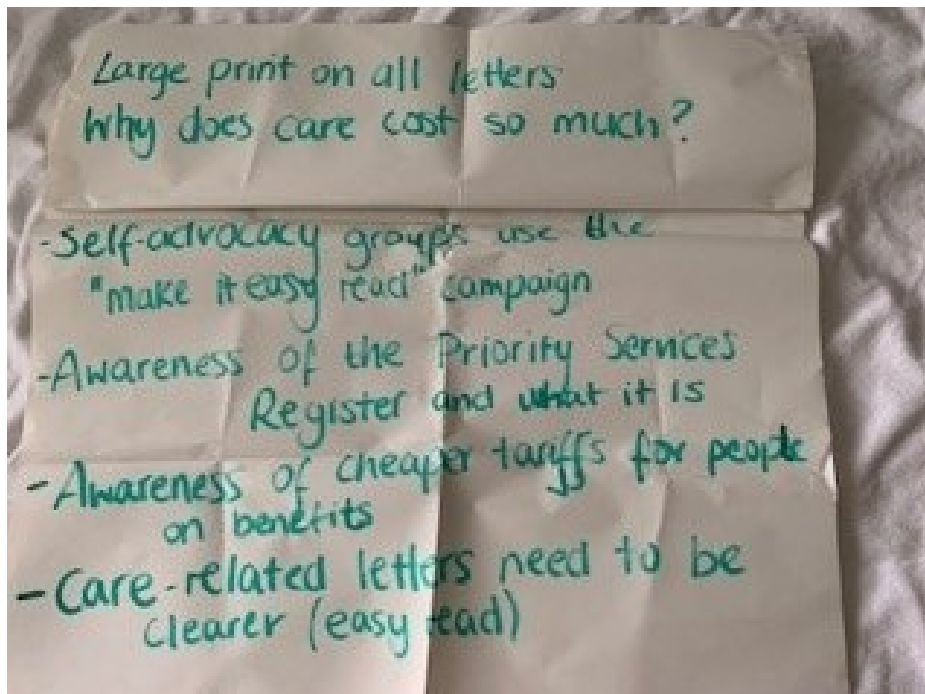 Large print on all letters
Why does care cost so much?
-Self-advocacy groups use the
"make it easy read" campaign
-Awareness of the Priority Services
Register and what it is
-Awareness of cheaper tariffs for people
on benefits
-Care-related letters need to be
clearer (easy read)